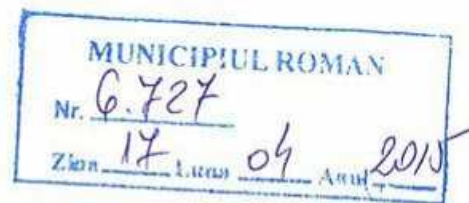 MUNICIPIUL ROMAN
Nr. 6.727
Ziua 17 Luna 04 Anul 2015